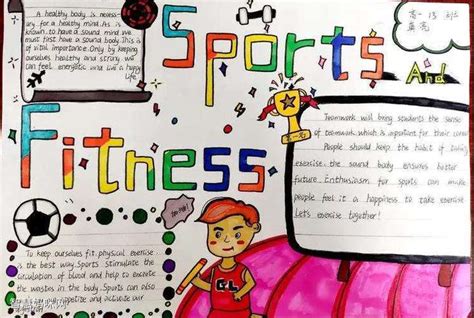 A healthy body is necess-
ary for a healthy mind. As is
known to have a sound mind we
must first have a sound body. This is
of vital importance. Only by keeping
ourselves healthy and strong we
can feel energetic and live a happy
life.
Sports
And
Fitness
高一
Teamwork will bring students the sense
of teamwork which is important for their
People should keep the habit of
exercise. the sound body ensures better
future. Enthusiasm for sports can make
people feel it a happiness to take exercise
Let's exercise together!
To keep ourselves fit, physical exercise
is the best way. Sports stimulate the
circulation of blood and help to excrete
the wastes in the body. Sports can also
appetite and activate our